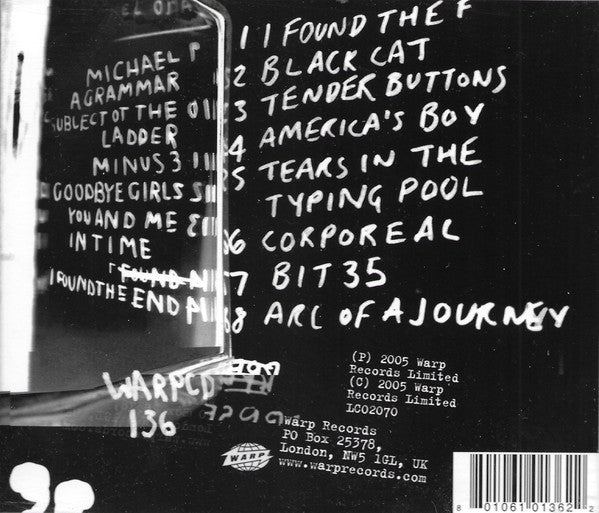 1 I FOUND THE F
2 BLACK CAT
3 TENDER BUTTONS
4 AMERICA'S BOY
5 TEARS IN THE
TYPING POOL
6 CORPOREAL
7 BIT 35
8 ARC OF A JOURNEY
MICHAEL
A GRAMMAR
SUBJECT OT THE
LADDER
MINUS 3
GOODBYE GIRLS
YOU AND ME
IN TIME
I FOUND THE END
WARPCD
136
(P) 2005 Warp
Records Limited
(C) 2005 Warp
Records Limited
LC02070
WARP
Warp Records
PO Box 25378,
London, NW5 1GL, UK
www.warprecords.com
8 01061 01362 2